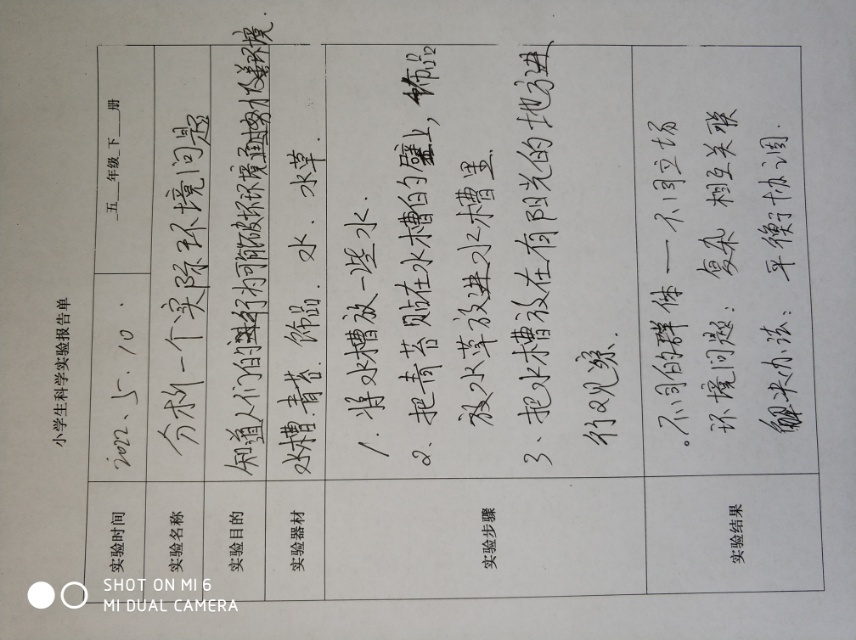 小学生科学实验报告单
实验时间 2022、5.10. 五 年级 下 册
实验名称 分析一个实际环境问题
实验目的 知道人们的行为可能破坏环境通过努力改善环境.
实验器材 水槽.青苔.饰品.水.水草.
实验步骤
1.将水槽放一些水.
2、把青苔贴在水槽的壁上,饰品
放水草放进水槽里.
3、把水槽放在有阳光的地方进
行观察.
实验结果
。不同的群体—不同立场
环境问题:复杂 相互关联
解决办法:平衡协调.
SHOT ON MI 6
MI DUAL CAMERA